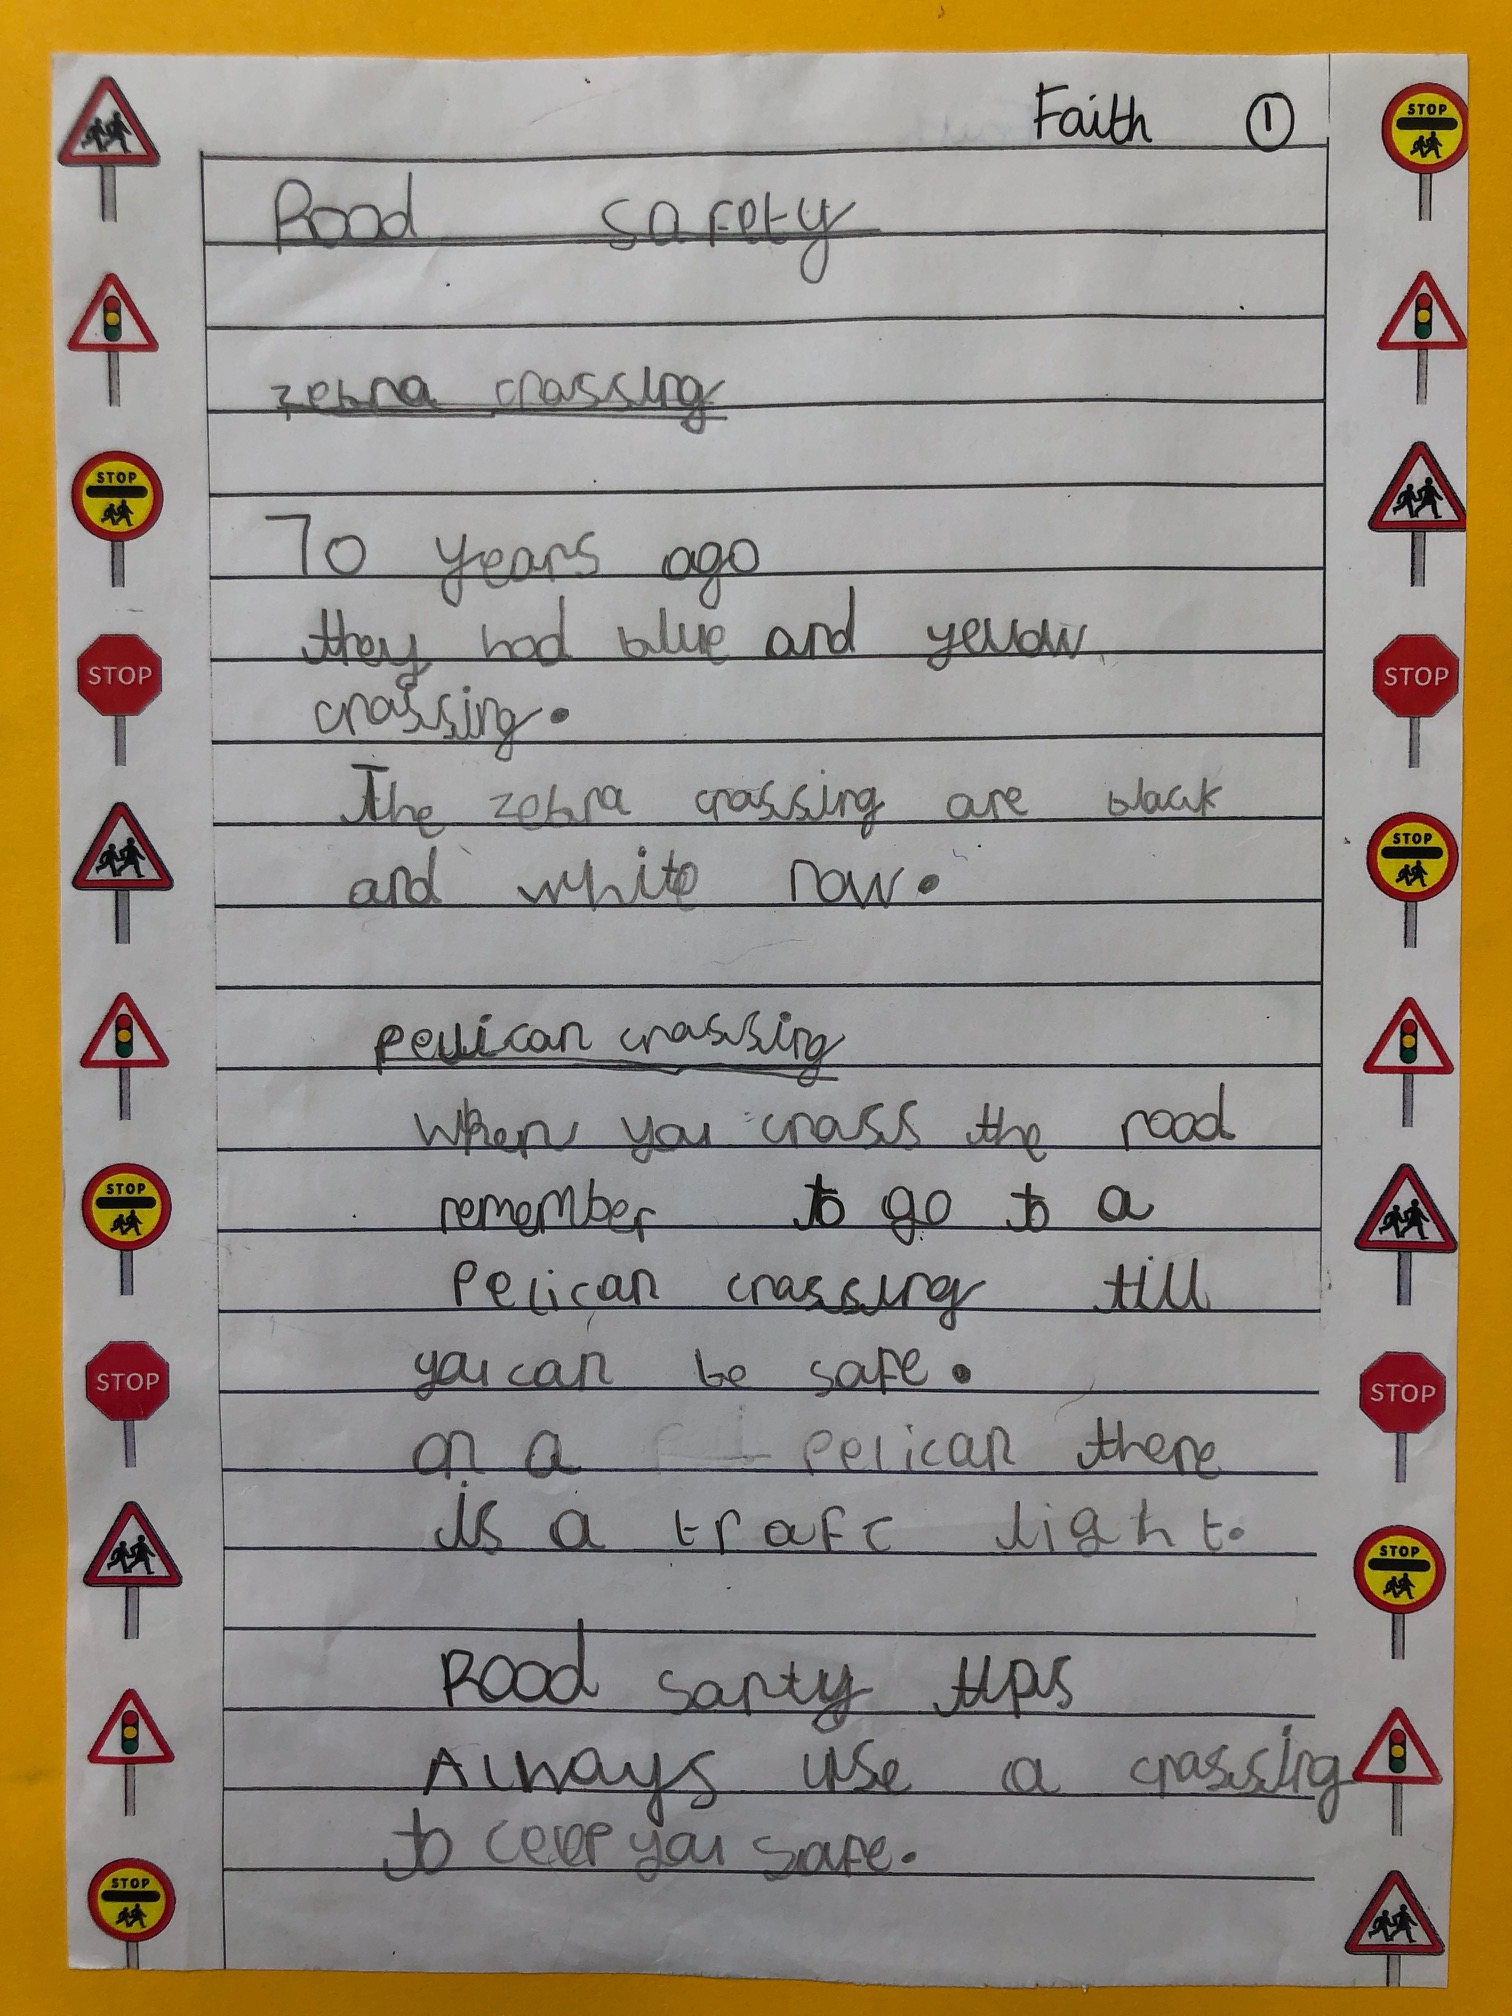 Faith 1
Road safety
zebra crossing
70 years ago
they had blue and yellow
crossing.
The zebra crossing are black
and white now.
pellican crossing
when you cross the road
remember to go to a
Pelican crossing till
you can be safe.
on a pelican there
is a trafc light.
Road safty tips
Always use a crossing
to ceep you safe.
STOP
STOP
STOP
STOP
STOP
STOP
STOP
STOP
STOP
STOP